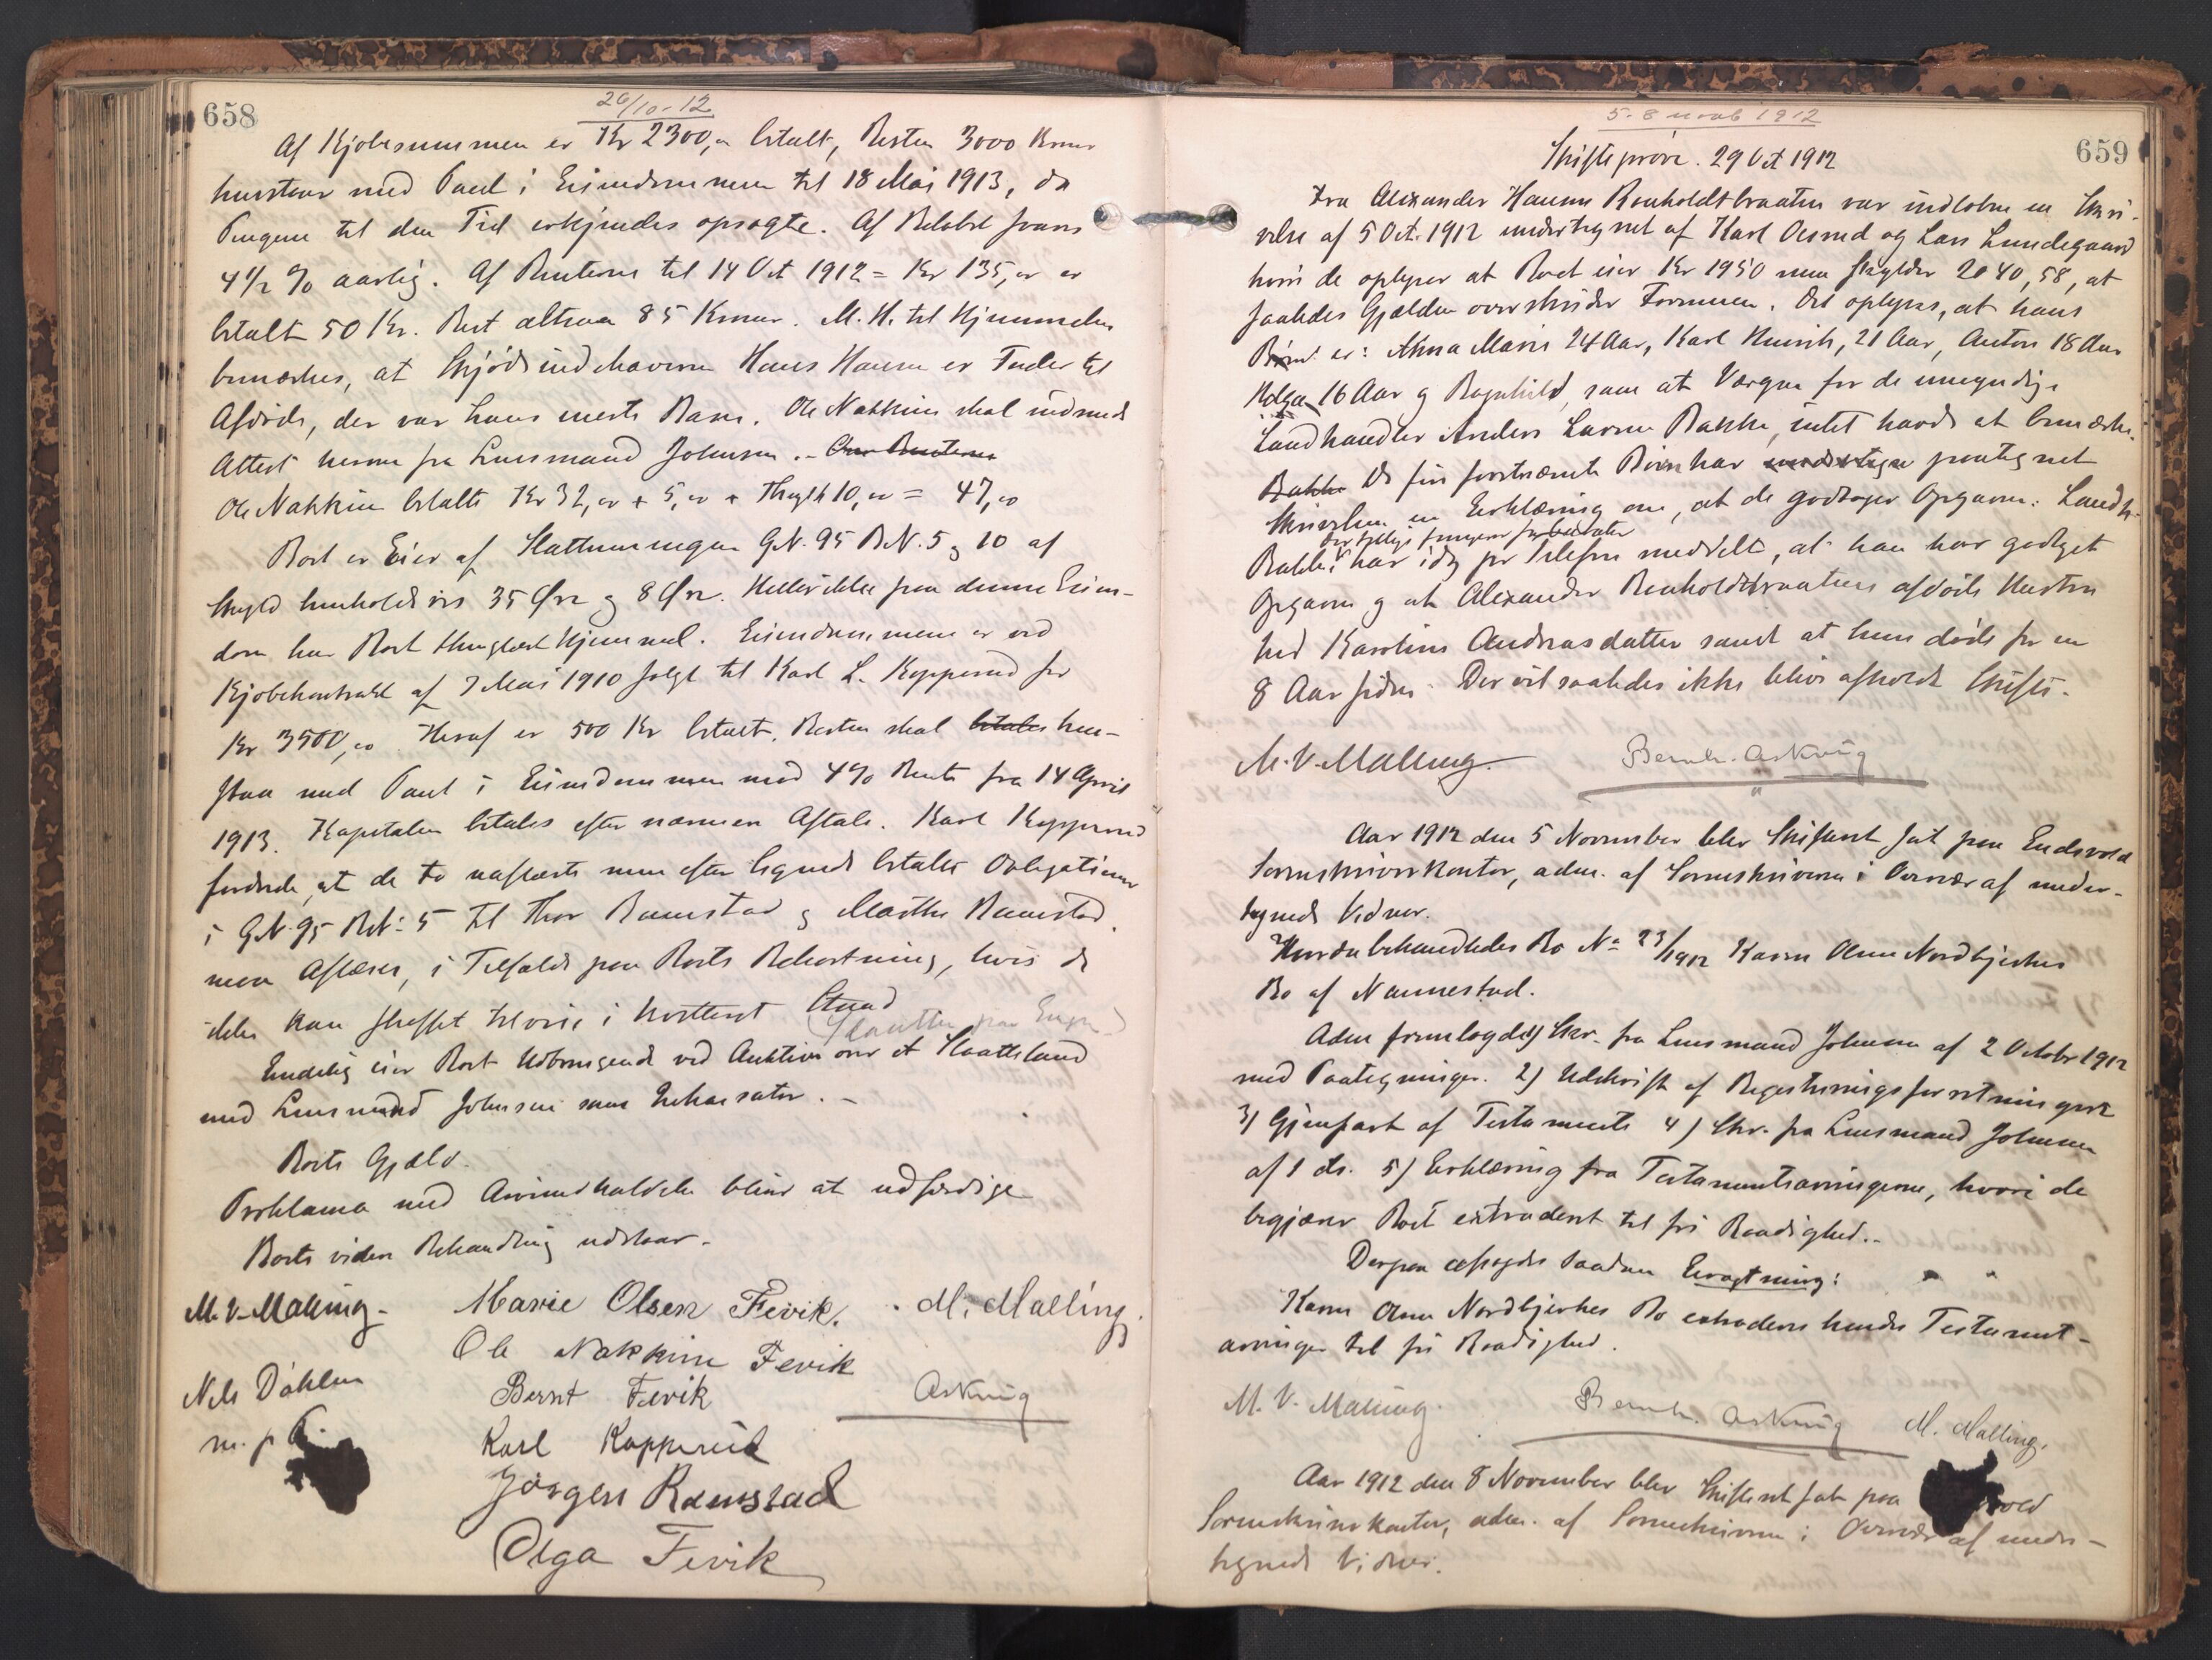 658
26/10-12
Af Kjøbesummen er Kr 2300,00 betalt, Resten 3000 Kroner
henstaar med Pant i Eiendommen til 18 Mai 1913, da
Pengene til den Tid erkjendes opsagte. Af Beløbet svares
4 1/2 % aarlig. Af Renterne til 14 Oct 1912 = Kr 135,00 er
betalt 50 Kr. Rest altsaa 85 Kroner. M. H. til Hjemmelen
bemærkes, at Skjødeindehaveren Hans Hansen er Fader til
Afdøde, der var hans eneste Barn. Ole Nakkim skal indsende
Attest herom fra Lensmand Johnsen. –
Ole Nakkim betalte Kr 32,00 + 5,00 + Thingl 10,00 = 47,00
Boet er Eier af Slattumengen G.N. 95 B.N. 5 og 10 af
Skyld henholdsvis 35 Øre og 8 Øre. Heller ikke paa denne Eien-
dom har Boet thinglæst Hjemmel. Eiendommene er ved
Kjøbekontrakt af 7 Mai 1910 solgt til Karl L. Kopperud for
Kr 3500,00. Heraf er 500 Kr betalt. Resten skal betales hen-
staa med Pant i Eiendommen mod 4% Rente fra 14 April
1913. Kapitalen betales efter nærmere Aftale. Karl Kopperud
fordrede, at de to uaflæste men efter Sigende betalte Obligationer
i G.N. 95 B.N. 5 til Thor Ramstad og Marthe Ramstad
maa aflæses, i Tilfælde paa Boets Bekostning, hvis de
ikke kan skaffes tilveie i kvitteret Stand
Endelig eier Boet Udbringende ved Auktion over et Slaatteland
med Lensmand Johnsen som Inkassator. –
Boets Gjæld.
Proklama med Arvindkaldelse bliver at udfærdige
Boets videre Behandling udstaar.
M. V. Malling – Marie Olsen Fevik. M. Malling.
Ole Nakkim Fevik
Nils Dahlen Bernt Fevik Askvig
m. p. Karl Kopperud
Jørgen Ramstad
Olga Fevik
5-8 novb 1912
659
Skifteprøve. 29 Oct 1912
Fra Alexander Hansen Ronholdtbraaten var indløbne en Skri-
velse af 5 Oct. 1912 undertegnet af Karl Aasrud og Lars Lundegaard
hvori de oplyser at Boet eier Kr 1950 men skylder 2040,58, at
saaledes Gjælden overskrider Formuen. Det oplyses, at hans
Børn er: Anna Marie 24 Aar, Karl Henrik, 21 Aar, Anton 18 Aar
Helga 16 Aar og Ragnhild, samt at Værgen for de umyndige
Landhandler Anders Larsen Bakke, intet havde at bemærke.
Bakke De fire førstnævnte Børn har paategnet
Skrivelsen en Erklæring om, at de godtager Opgaven. Landh.
Bakke har idag pr Telefon meddelt, at han har godtget
Opgaven og at Alexander Ronholdtbraatens afdøde Hustru
hed Karoline Andreasdatter samt at hun døde for en
8 Aar siden. Der vil saaledes ikke blive afholdt Skifte.
M. V. Malling. Bernh. Askvig
Aar 1912 den 5 November blev Skifteret sat paa Eidsvold
Sorenskriverkontor, adm. af Sorenskriveren i Overvær af under-
tegnede Vidner.
Hvorda behandledes Bo No 23/1912 Karen Olsen Nordbjerkes
Bo af Nannestad.
Adm fremlagde 1) Skr. fra Lensmand Johnsen af 2 Octobr 1912
med Paategninger. 2) Udskrift af Registreringsforretningen
3) Gjenpart af Testamente 4) Skr. fra Lensmand Johnsen
af 1 ds. 5) Erklæring fra Testamentsarvingerne, hvori de
begjærer Boet extraderet til fri Raadighed. –
Derpaa afsagdes saadan Eragtning:
Karen Olsen Nordbjerkes Bo extraderes hendes Testament-
arvinger til fri Raadighed.
M. V. Malling. Bernh. Askvig M. Malling.
Aar 1912 den 8 November blev Skifteret sat paa vold
Sorenskriverkontor, adm. af Sorenskriveren i Overvær af under-
tegnede Vidner.